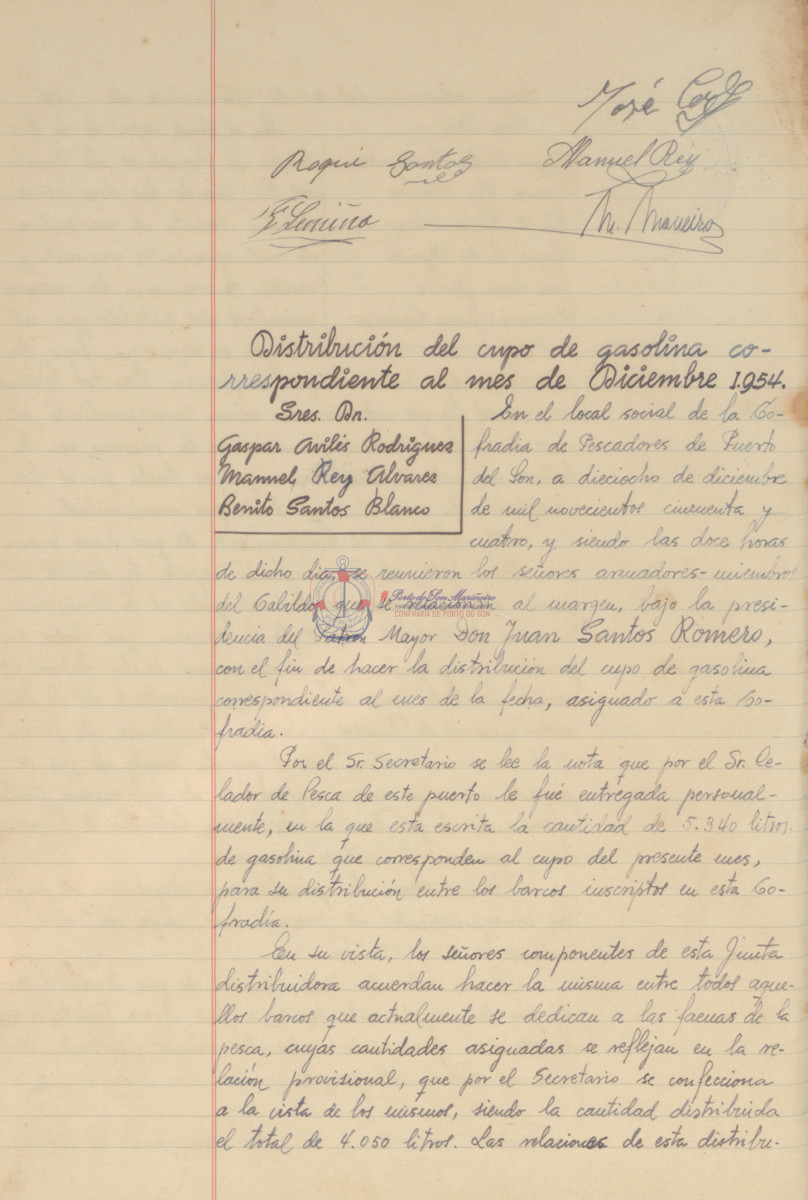 José
Roque Santos
Manuel Rey
M. Maneiro
Distribución del cupo de gasolina co-
rrespondiente al mes de Diciembre 1.954.
Sres. Dn.
Gaspar Avilés Rodriguez
Manuel Rey Alvarez
Benito Santos Blanco
En el local social de la Co-
fradia de Pescadores de Puerto
del Son, a dieciocho de diciembre
de mil novecientos cincuenta y
cuatro, y siendo las doce horas
de dicho dia, se reunieron los señores armadores-miembros
del Cabildo que se relacionan al margen, bajo la presi-
dencia del Patron Mayor Don Juan Santos Romero,
con el fin de hacer la distribución del cupo de gasolina
correspondiente al mes de la fecha, asignado a esta Co-
fradia.
Por el Sr. Secretario se lee la nota que por el Sr. Ce-
lador de Pesca de este puerto le fué entregada personal-
mente, en la que esta escrita la cantidad de 5.340 litros.
de gasolina que corresponden al cupo del presente mes,
para su distribución entre los barcos inscriptos en esta Co-
fradía.
En su vista, los señores componentes de esta Junta
distribuidora acuerdan hacer la misma entre todos aque-
llos barcos que actualmente se dedican a las faenas de la
pesca, cuyas cantidades asignadas se reflejan en la re-
lación provisional, que por el Secretario se confecciona
a la vista de los mismos, siendo la cantidad distribuida
el total de 4.050 litros. Las relaciones de esta distribu-
Porto do Son Mariñeiro
CONFRARÍA DE PORTO DO SON